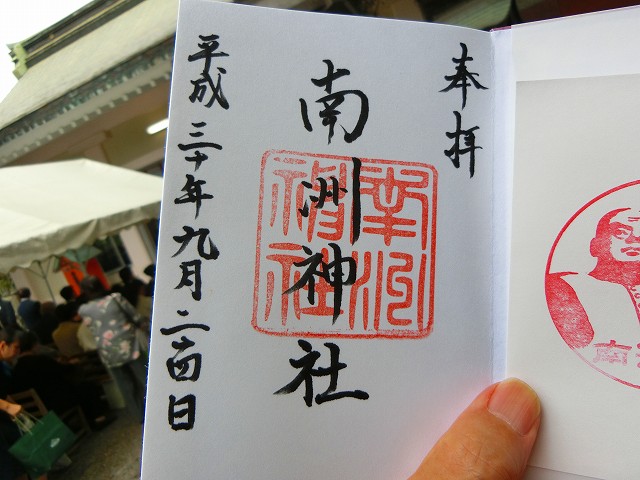 奉拝
南洲神社
南洲
神社
平成三十年九月二十四日
南